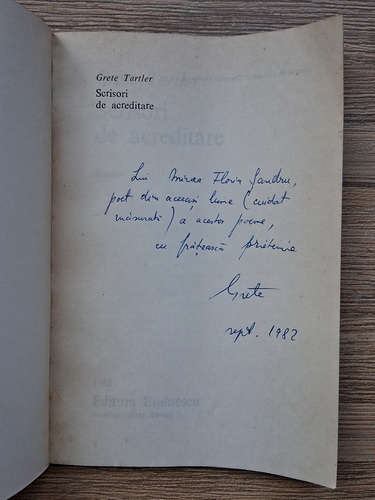 Grete Tartler
Scrisori
de acreditare
Lui Mircea Florin Șandru,
poet din aceeași lume (ciudat
măsurată) a acestor poeme,
cu frățească prietenie
Grete
sept. 1982
de acreditare
1982
Editura Eminescu